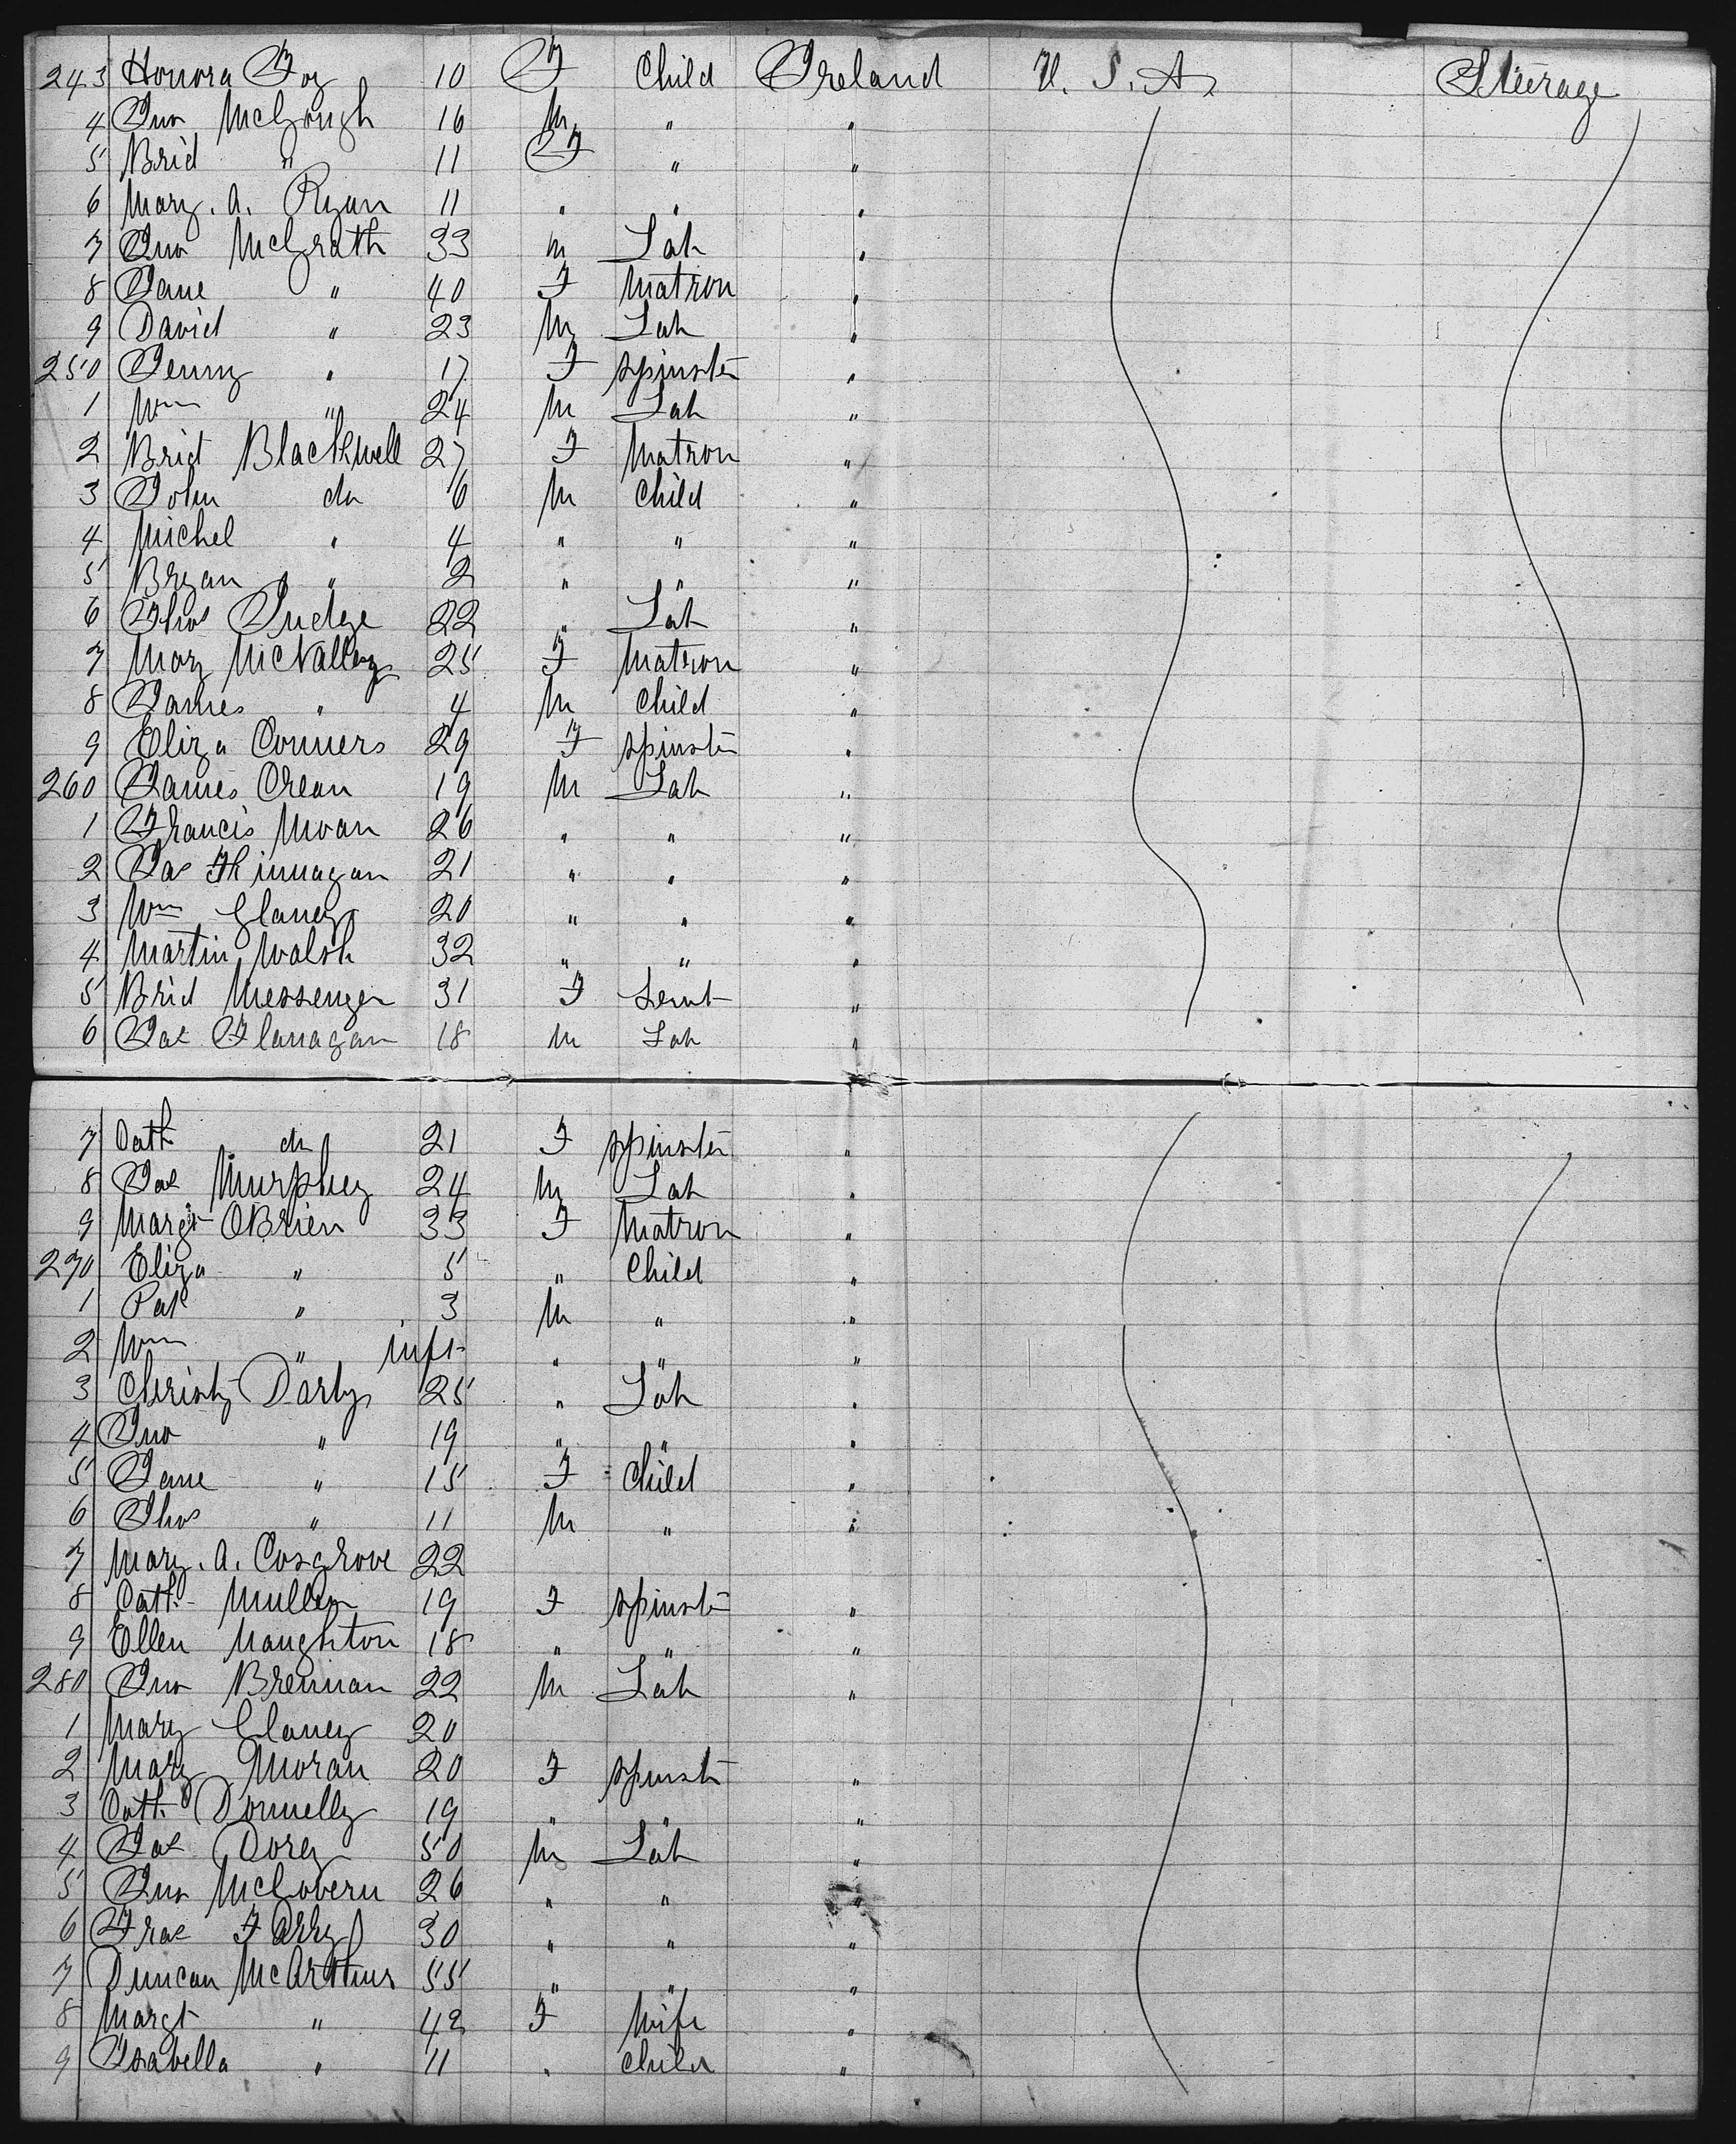 243 Honora Foy 10 F Child Ireland U. S. A. Steerage
4 Jno McGough 16 M " "
5 Brid " 11 F " "
6 Mary. A. Ryan 11 " " "
7 Jno McGrath 33 M Lab "
8 Jane " 40 F Matron "
9 David " 23 M Lab "
250 Jenny " 17 F Spinstr "
1 Wm " 24 M Lab "
2 Brid Blackwell 27 F Matron "
3 John do 6 M Child "
4 Michel " 4 " " "
5 Bryan " 2 " " "
6 Thos Judge 22 " Lab "
7 Mary McNalley 25 F Matron "
8 James " 4 M Child "
9 Eliza Conners 29 F Spinstr "
260 James Crean 19 M Lab "
1 Francis Moan 26 " " "
2 Jas Fhinnagan 21 " " "
3 Wm Glancy 20 " " "
4 Martin Walsh 32 " " "
5 Brid Messenger 31 F Servt "
6 Pat Flanagan 18 M Lab "
7 Cath do 21 F Spinster "
8 Pat Murphey 24 M Lab "
9 Margt OBrien 33 F Matron "
270 Eliza " 5 " Child "
1 Pat " 3 M " "
2 Wm " inft " " "
3 Christy Darby 25 " Lab "
4 Jno " 19 " " "
5 Jane " 15 F Child "
6 Thos " 11 M " "
7 Mary. A. Cosgrove 22
8 Cath Mullen 19 F Spinstr "
9 Ellen Naughton 18 " " "
280 Jno Brennan 22 M Lab "
1 Mary Clancy 20
2 Mary Moran 20 F Spinstr "
3 Cath Donnelly 19 " " "
4 Pat Dorey 50 M Lab "
5 Jno McGovern 26 " " "
6 Frae Farry 30 " " "
7 Duncan McArthur 55 " " "
8 Margt " 42 F Wife "
9 Isabella " 11 " Child "